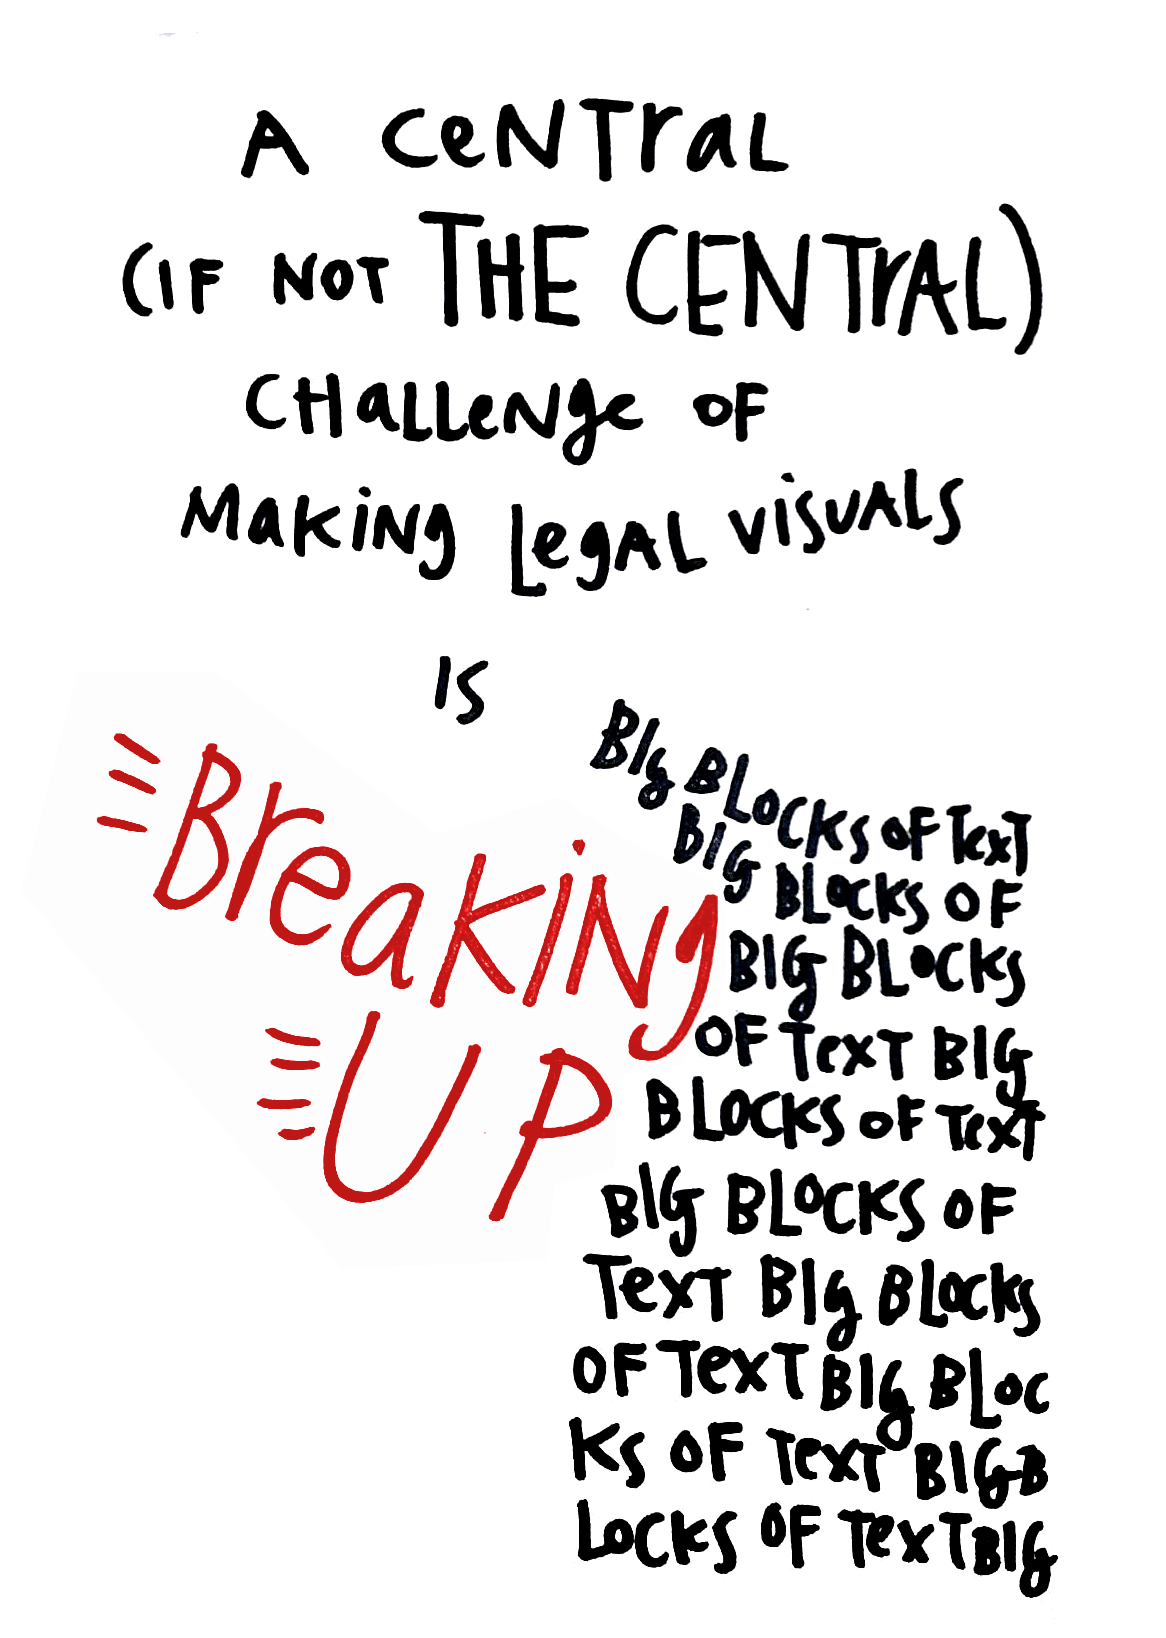 A CeNTral
(IF NOT THE CENTrAL)
CHalleNge OF
Making LegAL visuALs
IS
Breaking
UP
BIg BLOCKS OF Text
BIG BLOCKS OF
BIG BLOCKS
OF Text BIG
BLOCKS OF Text
BIG BLOCKS OF
Text BIg BLOCKS
OF Text BIg BLOC
KS OF Text BIGB
LOCKS OF TextBIG